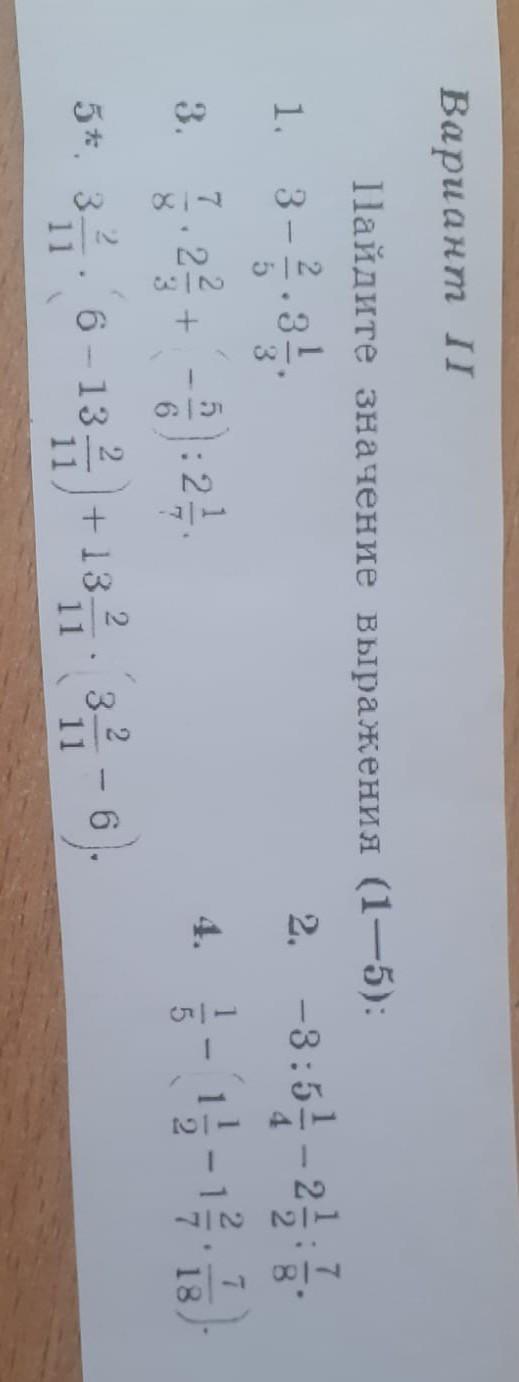 Вариант II
Найдите значение выражения (1—5):
1. 3 − 2/5 · 3 1/3.
2. −3 : 5 1/4 − 2 1/2 : 7/8.
3. 7/8 · 2 2/3 + (−5/6) : 2 1/7.
4. 1/5 − (1 1/2 − 1 2/7 · 7/18).
5*. 3 2/11 · (6 − 13 2/11) + 13 2/11 · (3 2/11 − 6).